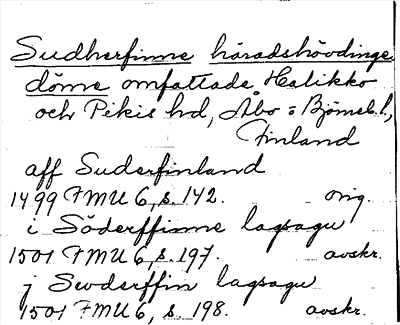 Sudherfinne häradshövdinge
döme omfattade Halikko
och Pikis hd, Åbo o Björneb. l.,
Finland
aff Suderfinland
1499 FMU 6, s. 142. orig.
i Söderffinne lagsagu
1501 FMU 6, s. 197. avskr.
j Swderffin lagsagu
1501 FMU 6, s. 198. avskr.